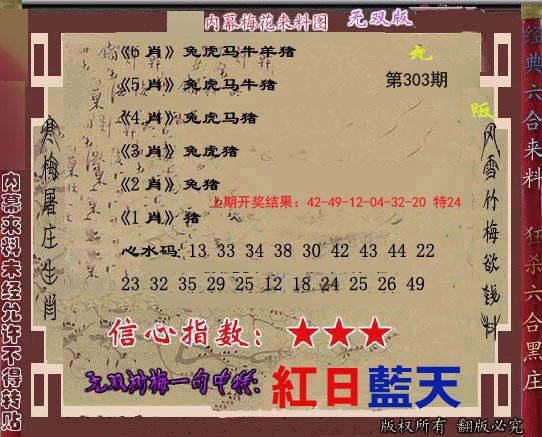 内幕梅花来料图 无双版
《6 肖》兔虎马牛羊猪
《5 肖》兔虎马牛猪
《4 肖》兔虎马猪
《3 肖》兔虎猪
《2 肖》兔猪
《1 肖》猪
第303期
上期开奖结果：42-49-12-04-32-20 特24
心水码: 13 33 34 38 30 42 43 44 22
23 32 35 29 25 12 18 24 25 26 49
信心指数：★★★
紅日藍天
寒梅屠庄生肖
风雪竹梅欲钱料
内幕来料未经允许不得转贴
经典六合来料
狂杀六合黑庄
版权所有 翻版必究